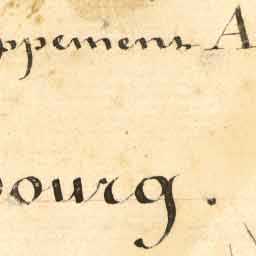 ppement A
bourg.